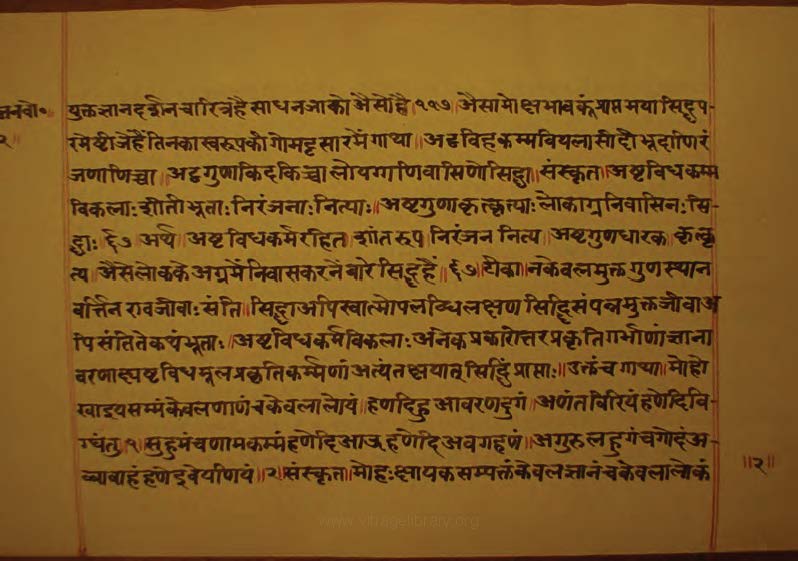 युक्तज्ञानदर्शनचारित्रहैसाधनजाकोअैसोहै ११७ ॥ अैसामोक्षभावकूंप्राप्तभयासिद्धप-
रमेष्टीजेहैंतिनकास्वरूपकौगोमट्टसारमेंगाथा ॥ अट्ठविहकम्मवियलासीदीभूदाणिरं
जणाणिच्चा ॥ अट्ठगुणाकिदकिच्चालोयग्गणिवासिणोसिद्धा ॥ संस्कृत ॥ अष्टविधकम्म
विकलाः शीतीभूताः निरंजनाः नित्याः ॥ अष्टगुणाकृत्कृत्याः लोकाग्रनिवासिनः सि-
द्धाः ६७ अर्थ अष्टविधकर्मरहित शांतरूप निरंजन नित्य ॥ अष्टगुणधारक कृत्कृ
त्य अैसेलोककेअग्रमेंनिवासकरनेंवारेसिद्धहैं ॥ ६७ ॥ टीका ॥ नकेवलमुक्तगुणस्थान
वर्त्तिनएवजीवाः संति ॥ सिद्धाअपिस्वात्मोपलब्धिलक्षणसिद्धिसंपन्नमुक्तजीवाअ
पिसंतितेकथंभूताः ॥ अष्टविधकर्मविकलाः अनेकप्रकारोत्तरप्रकृतिगर्भाणांज्ञाना
वरणाद्यष्टविधमूलप्रकृतिकर्म्मणांअत्यंतक्षयात्सिद्धिंप्राप्ताः ॥ उक्तंचगाथा ॥ मोहो
खाइयसम्मंकेवलणाणंचकेवलालोयं ॥ हणदिहुआवरणदुगं ॥ अणंतविरियंहणेदिवि-
ग्घंतु १ ॥ सुहुमंचणामकम्मंहणेदिआऊहणेदिअवगहणं ॥ अगुरुलहुगंचगोदंअ-
व्वावाहंहणेइवेयणियं ॥ २ ॥ संस्कृत ॥ मोहःक्षायकसम्यक्तंकेवलज्ञानंचकेवलालोकं
॥२॥
www.vitragelibrary.org